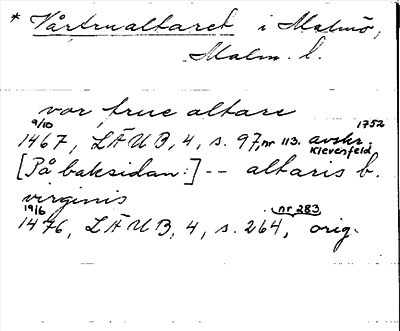 * Vårfrualtaret i Malmö,
Malm. l.
vor frue altare
9/10 1467, LÄUB, 4, s. 97, nr 113. avskr. 1752 Klevenfeld
[På baksidan:] -- altaris b.
virginis
19/6 1476, LÄUB, 4, s. 264, nr 283, orig.